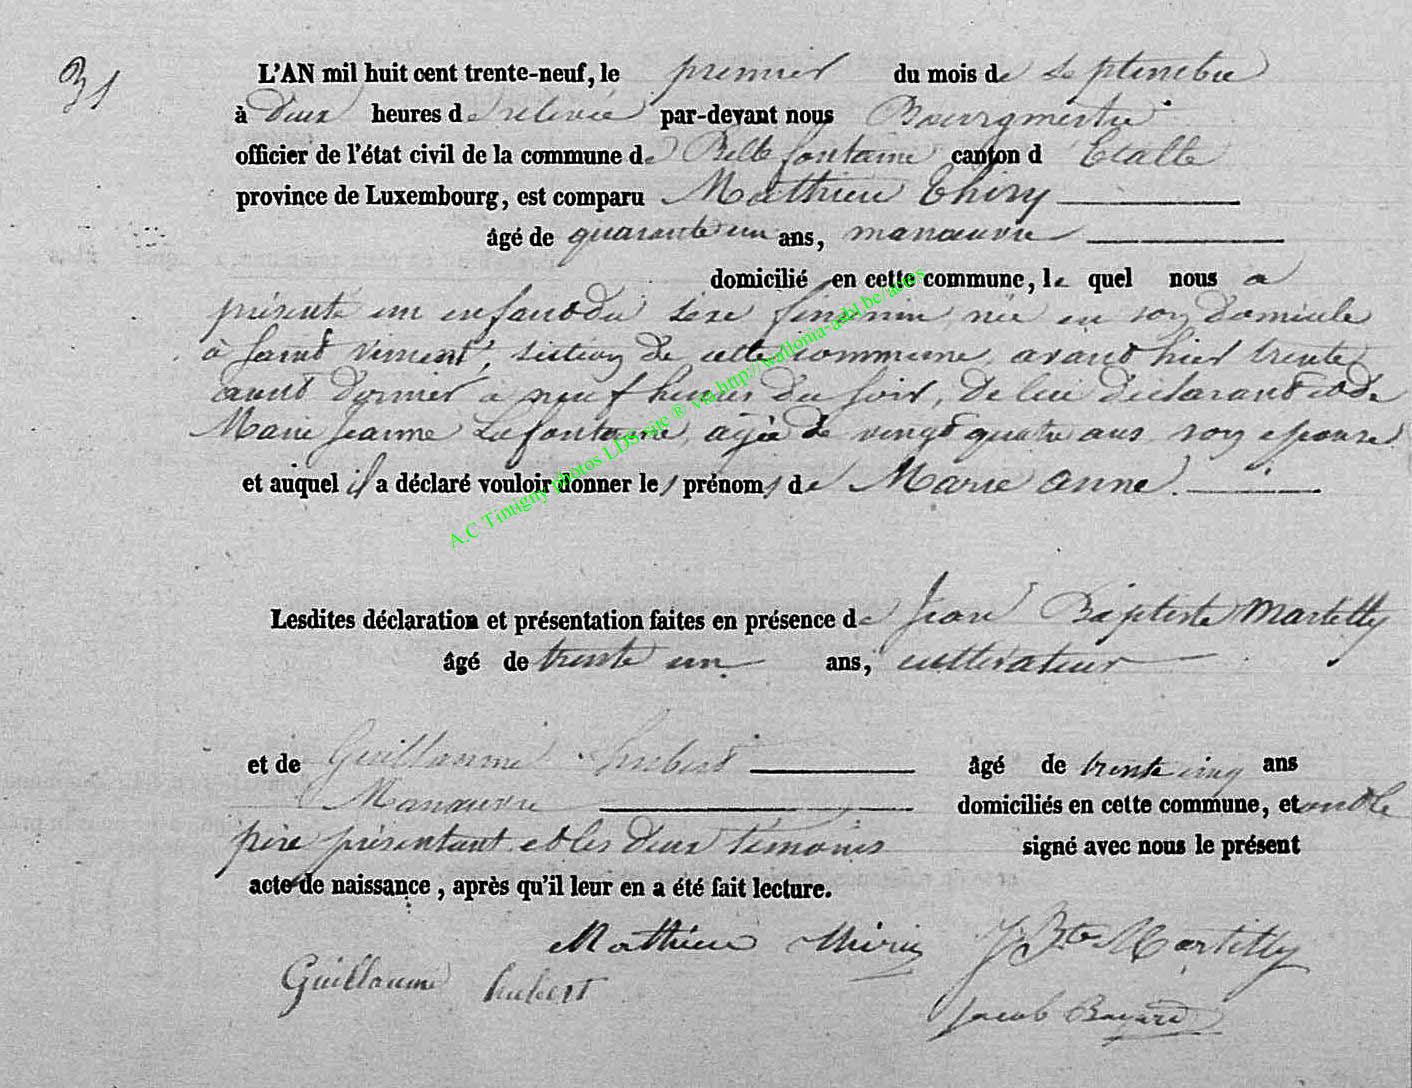 31
L'AN mil huit cent trente-neuf, le premier du mois de Septembre
à deux heures de relevée par-devant nous Bourgmestre
officier de l'état civil de la commune de Bellefontaine canton d Etalle
province de Luxembourg, est comparu Mathieu Thiry
âgé de quarante un ans, manœuvre
domicilié en cette commune, le quel nous a
présenté un enfant du sexe féminin, née en son domicile
à Saint Vincent, section de cette commune, avant hier trente
aout dernier à neuf heures du soir, de lui déclarant et de
Marie Jeanne Lafontaine, agée de vingt quatre ans son epouse
et auquel il a déclaré vouloir donner les prénoms de Marie anne.
Lesdites déclaration et présentation faites en présence de Jean Baptiste Martilly
âgé de trente un ans, cultivateur
et de Guillaume hubert âgé de trente cinq ans
Manœuvre domiciliés en cette commune, et ont le
père présentant et les deux témoins signé avec nous le présent
acte de naissance, après qu'il leur en a été fait lecture.
Mathieu Thiriy J Bte Martilly
Guillaume hubert
Jacob Bavard
A.C Tintigny photos LDS site ® via http://wallonia-asbl.be/actes